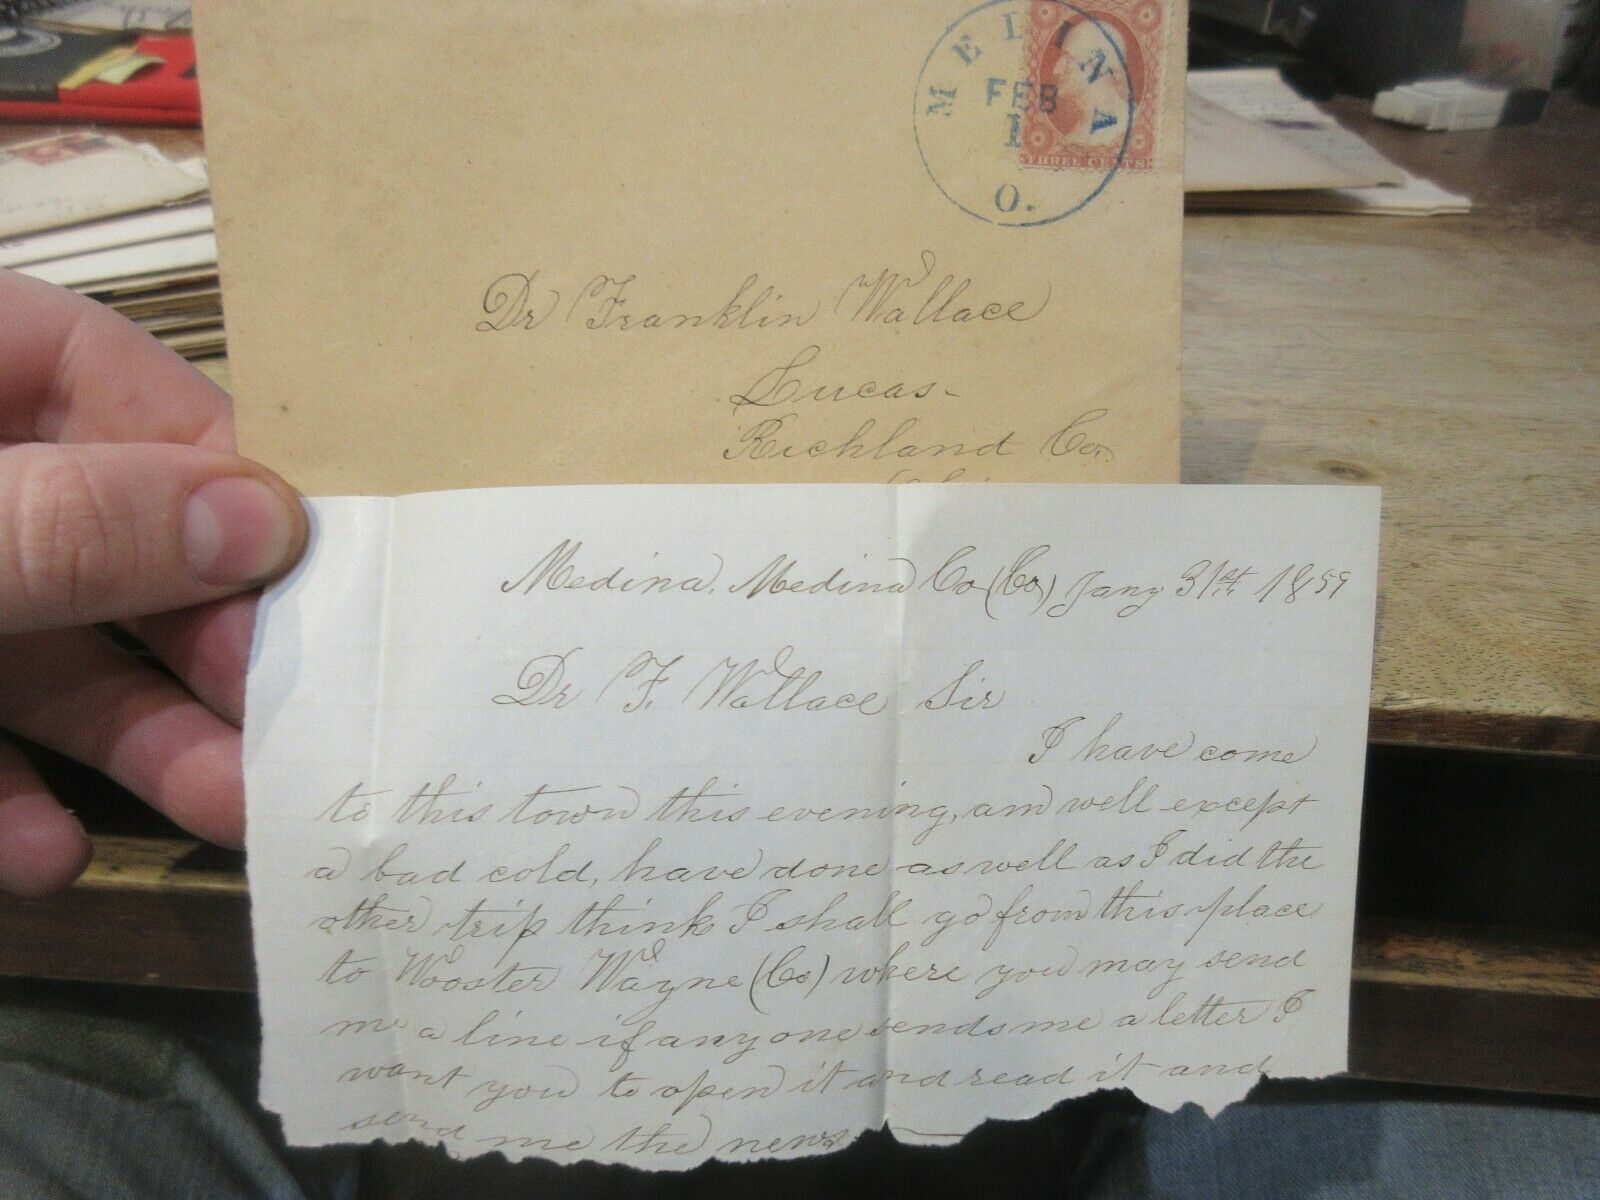 MEDINA
FEB
1
O.
THREE CENTS
Dr Franklin Wallace
Lucas-
Richland Co.
Medina, Medina Co (Co) Jany 31st 1859
Dr F. Wallace Sir
I have come
to this town this evening, am well except
a bad cold, have done as well as I did the
other trip think I shall go from this place
to Wooster Wayne (Co) where you may send
me a line if any one sends me a letter I
want you to open it and read it and
send me the news